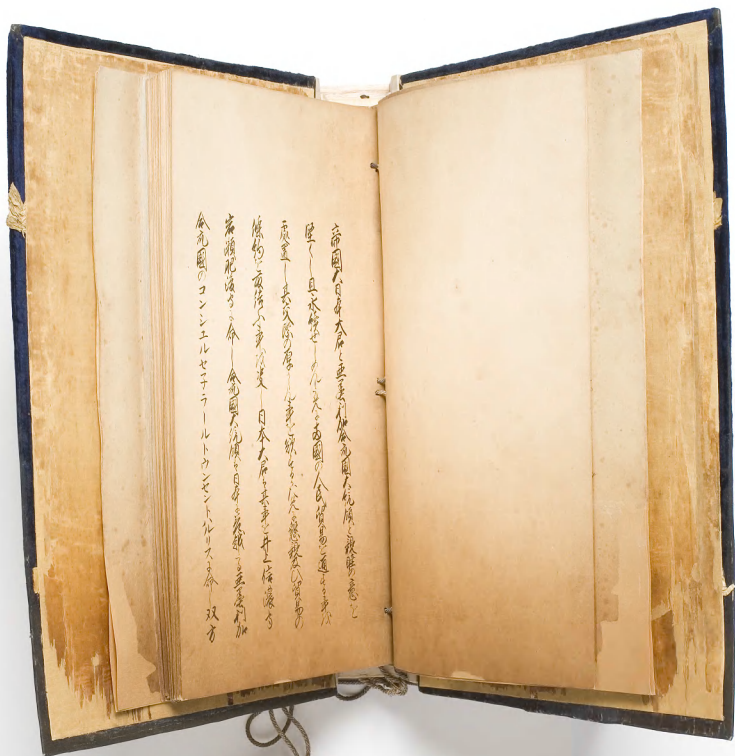 帝國大日本大君と亜墨利加合衆國大統領と親睦の意を
堅くし且永續せしめんか爲に両國の人民貿易を通する事を
處置し其交際の厚からん事を欲するか爲に懇親及ひ貿易の
條約を取結ふ事を決し日本大君は其事を井上信濃守
岩瀬肥後守に命し合衆國大統領は日本に差越たる亜墨利加
合衆國のコンシユルセネラールトウンセントハルリスに命し双方